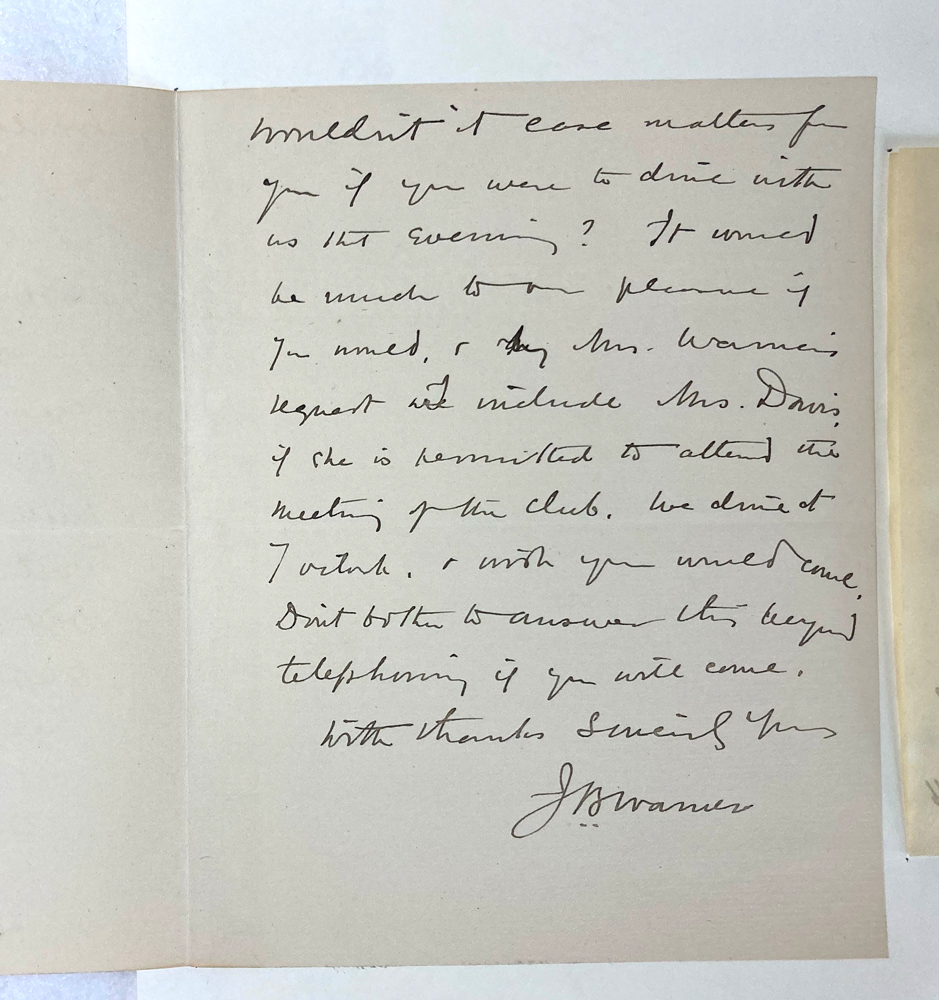 Wouldn't it ease matters for
you if you were to dine with
us that evening? It would
be much to our pleasure if
you would, & by Mrs. Warner's
request will include Mrs. Davis,
if she is permitted to attend the
meeting of the Club. We dine at
7 o'clock. & wish you would come.
Don't bother to answer this beyond
telephoning if you will come.
With thanks Sincerely Yours
J B Warner